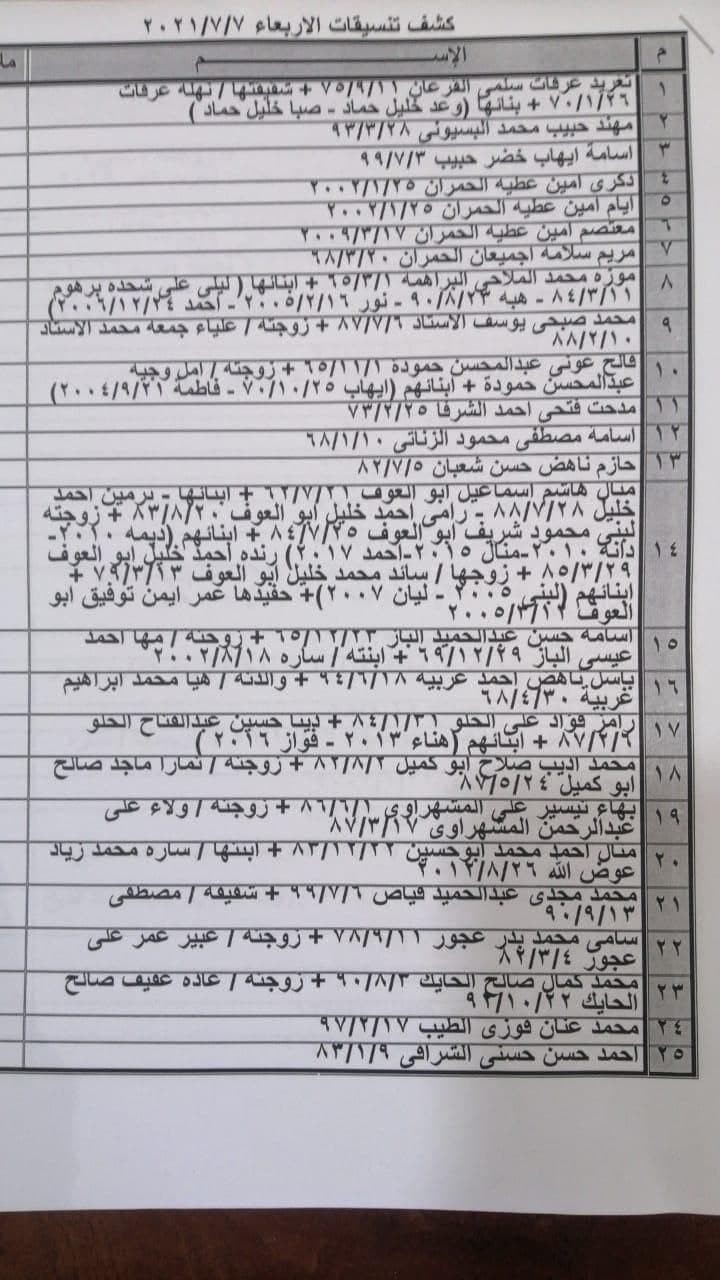 كشف تنسيقات الاربعاء ٢٠٢١/٧/٧
م الإســـــم ما
١ تغريد عرفات سلمى القرعان ٧٥/٩/١١ + شقيقتها / نهله عرفات
٧٠/١/٢٦ + بناتها (وعد خليل حماد - صبا خليل حماد )
٢ مهند حبيب محمد البسيونى ٩٣/٣/٢٨
٣ اسامة ايهاب خضر حبيب ٩٩/٧/٣
٤ ذكرى امين عطيه الحمران ٢٠٠٢/١/٢٥
٥ ايام امين عطيه الحمران ٢٠٠٢/١/٢٥
٦ معتصم امين عطيه الحمران ٢٠٠٩/٣/١٧
٧ مريم سلامه اجميعان الحمران ٦٨/٣/٢٠
٨ موزه محمد الملاحى البراهمه ٦٥/٣/١ + ابنائها ( ليلى على شحده برهوم
٨٤/٣/١١ - هبه ٩٠/٨/٢٣ - نور ٢٠٠٥/٢/١٦ - احمد ٢٠٠٦/١٢/٢٤)
٩ محمد صبحى يوسف الاستاد ٨٧/٧/٦ + زوجته / علياء جمعه محمد الاستاد
٨٨/٢/١٠
١٠ فالح عونى عبدالمحسن حمودة ٦٥/١١/١ + زوجته / امل وجيه
عبدالمحسن حمودة + ابنائهم (ايهاب ٧٠/١٠/٢٥ - فاطمة ٢٠٠٤/٩/٢١)
١١ مدحت فتحى احمد الشرفا ٧٣/٢/٢٥
١٢ اسامه مصطفى محمود الزناتى ٦٨/١/١٠
١٣ حازم ناهض حسن شعبان ٨٢/٧/٥
١٤ منال هاشم اسماعيل ابو العوف ٦٢/٧/٢١ + ابنائها - نرمين احمد
خليل ٨٨/٧/٢٨ - رامى احمد خليل ابو العوف ٨٣/٨/٢٠ + زوجته
لبنى محمود شريف ابو العوف ٨٤/٧/٢٥ + ابنائهم (ديمه ٢٠١٠-
دانة ٢٠١٠-منال ٢٠١٥-احمد ٢٠١٧) رنده احمد خليل ابو العوف
٨٥/٣/٢٩ + زوجها / سائد محمد خليل ابو العوف ٧٩/٣/١٣ +
ابنائهم (لبنى ٢٠٠٥ - ليان ٢٠٠٧)+ حفيدها عمر ايمن توفيق ابو
العوف ٢٠٠٥/٣/١٢
١٥ اسامه حسن عبدالحميد الباز ٦٥/١٢/٢٣ + زوجته / مها احمد
عيسى الباز ٦٩/١٢/٢٩ + ابنته / ساره ٢٠٠٢/٨/١٨
١٦ باسل ناهض احمد غربيه ٩٤/٦/١٨ + والدته / هيا محمد ابراهيم
غربية ٦٨/٤/٣٠
١٧ رامز فؤاد على الحلو ٨٤/١/٣١ + دينا حسين عبدالفتاح الحلو
٨٧/٢/٦ + ابنائهم (هناء ٢٠١٣ - فواز ٢٠١٦ )
١٨ محمد اديب صلاح ابو كميل ٨٢/٨/٢ + زوجته / تمارا ماجد صالح
ابو كميل ٨٧/٥/٢٤
١٩ بهاء تيسير على المشهراوى ٨٦/٦/١ + زوجته / ولاء على
عبدالرحمن المشهراوى ٨٧/٣/١٧
٢٠ منال احمد محمد ابوحسين ٨٣/١٢/٢٢ + ابنتها / ساره محمد زياد
عوض الله ٢٠١٢/٨/٢٦
٢١ محمد مجدى عبدالحميد فياض ٩٩/٧/٦ + شقيقه / مصطفى
٩٠/٩/١٣
٢٢ سامى محمد بدر عجور ٧٨/٩/١١ + زوجته / عبير عمر على
عجور ٨٢/٣/٤
٢٣ محمد كمال صالح الحايك ٩٠/٨/٣ + زوجته / غاده عفيف صالح
الحايك ٩٢/١٠/٢٢
٢٤ محمد عنان فوزى الطيب ٩٧/٢/١٧
٢٥ احمد حسن حسنى الشرافى ٨٣/١/٩